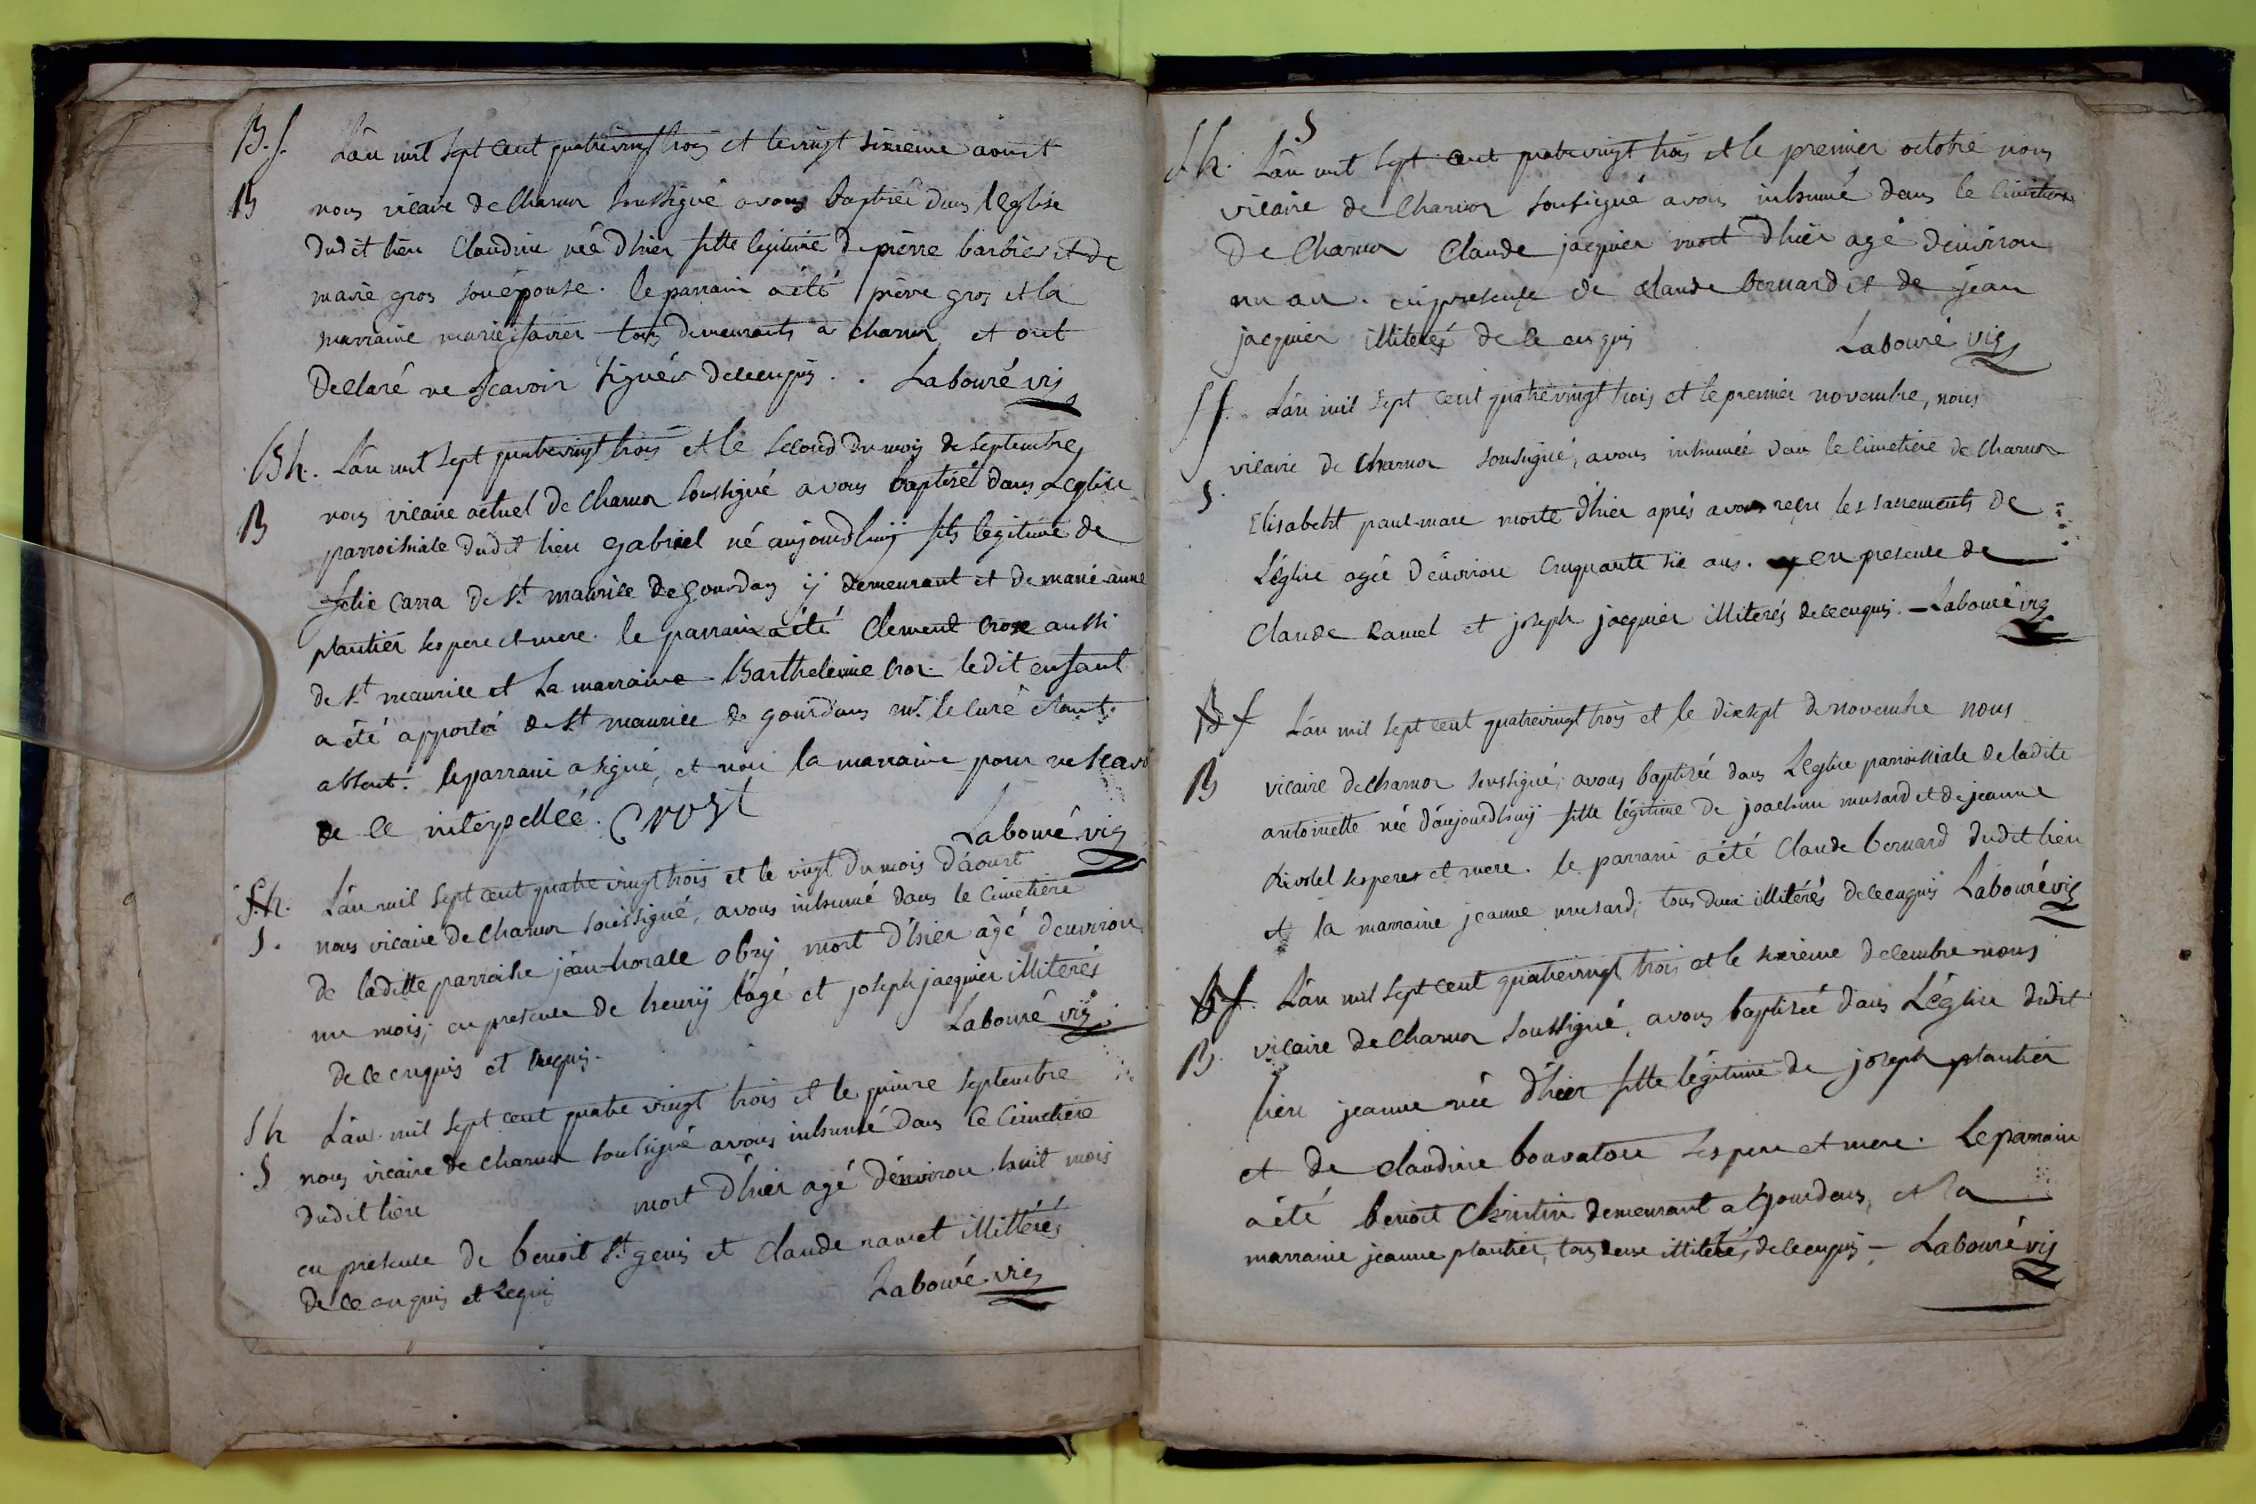 B.f. L'an mil sept cent quatrevingt trois et le vingt sixieme aoust
B nous vicaire de Charnor soussigné avons baptisée dans l'Eglise
dudit lieu Claudine née d'hier fille legitime de pierre barbier et de
marie gros son épouse. le parrain a été pierre gros et la
marraine marie favier tous demeurants à charnor et ont
declaré ne scavoir signer de ce enquis. . Labouré vic
Bh. L'an mil sept quatrevingt trois et le second du mois de septembre
B nous vicaire actuel de Charnor soussigné avons baptisé dans L'eglise
parroissiale dudit lieu gabriel né aujourdhuy fils legitime de
felie Carra de st. maurice de gourdan y demeurant et de marie anne
plantier ses pere et mere. le parrain a été Clement Crose aussi
de st maurice et la marraine Barthelemie Cror. ledit enfant
a été apporté de st maurice de gourdans mr. le curé étant
absent. le parrain a signé, et non la marraine pour ne scavoi
de ce interpellée. Crozt
Labouré vic
S.h. L'an mil sept cent quatre vingt trois et le vingt du mois d'aoust
S. nous vicaire de Charnor soussigné, avons inhumé dans le Cimetiere
de laditte parroisse jean-horace obrij mort d'hier âgé d'environ
un mois; en presence de henrij bagé et joseph jacquier illiterés
de ce enquis et requis. Labouré vic
Sh L'an mil sept cent quatre vingt trois et le quinze septembre
S nous vicaire de Charnor soussigné avons inhumé dans le Cimetiere
dudit lieu mort d'hier agé d'environ huit mois
en presence de benoit st. genis et Claude ramet illitérés
de ce enquis et requis Labouré vic
S
S h. L'an mil sept cent quatrevingt trois et le premier octobre nous
vicaire de Charnor soussigné avons inhumé dans le Cimetiere
de Charnor Claude jacquier mort d'hier agé d'environ
un an. en presence de Claude bernard et de jean
jacquier illiterés de ce enquis Labouré vic
S f. L'an mil sept cent quatrevingt trois et le premier novembre, nous
vicaire de Charnor soussigné, avons inhumée dans le Cimetiere de Charnor
S. Elisabeht paul-marc morte d'hier après avoir reçu les sacrements de
L'église agée d'environ Cinquante six ans. en presence de
Claude Ramel et joseph jacquier illiterés de ce enquis. - Labouré vic
B f L'an mil sept cent quatrevingt trois et le dixsept de novembre nous
B vicaire de Charnor soussigné, avons baptisée dans L'eglise parroissiale de ladite
antoinette née d'aujourdhuij fille légitime de joachim musard et de jeanne
Rivolel ses peres et mere. le parrain a été Claude bernard dudit lieu
et la marraine jeanne musard; tous deux illitérés de ce enquis Labouré vic
B f. L'an mil sept cent quatrevingt trois et le sixieme decembre nous
B. vicaire de Charnor soussigné, avons baptisée dans L'église dudit
lieu jeanne née d'hier fille légitime de joseph plantier
et de Claudine bouvatou ses pere et mere. Le parrain
a été benoit Christin demeurant a Gourdans, et la
marraine jeanne plantier, tous deux illiterés de ce enquis - Labouré vic